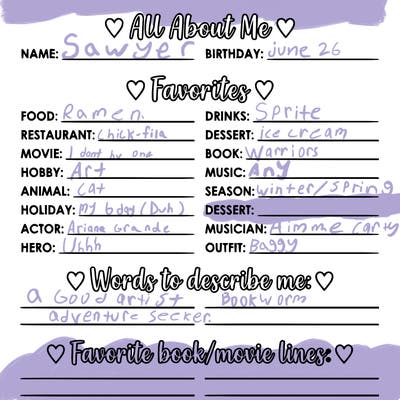 ♡ All About Me ♡
NAME: Sawyer BIRTHDAY: june 26
♡ Favorites ♡
FOOD: Ramen DRINKS: Sprite
RESTAURANT: chick-fila DESSERT: ice cream
MOVIE: I dont hv one BOOK: Warriors
HOBBY: Art MUSIC: Any
ANIMAL: Cat SEASON: winter/spring
HOLIDAY: my bday (Duh) DESSERT:
ACTOR: Ariana Grande MUSICIAN:
HERO: Uhhh OUTFIT: Baggy
♡ Words to describe me: ♡
a Good artist Bookworm
adventure seeker.
♡ Favorite book/movie lines: ♡